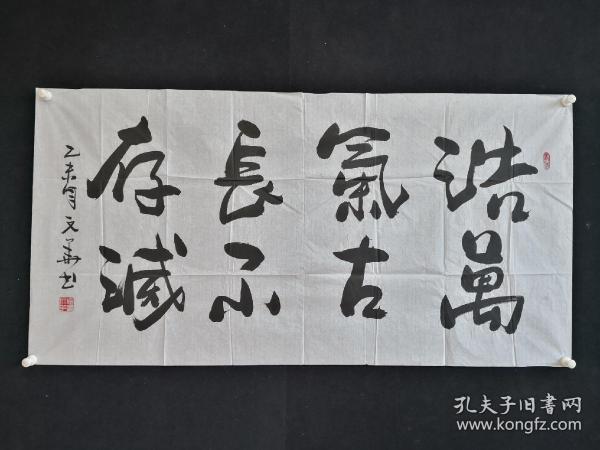 浩氣長存
萬古不滅
乙未年文華书
孔夫子旧書网
www.kongfz.com